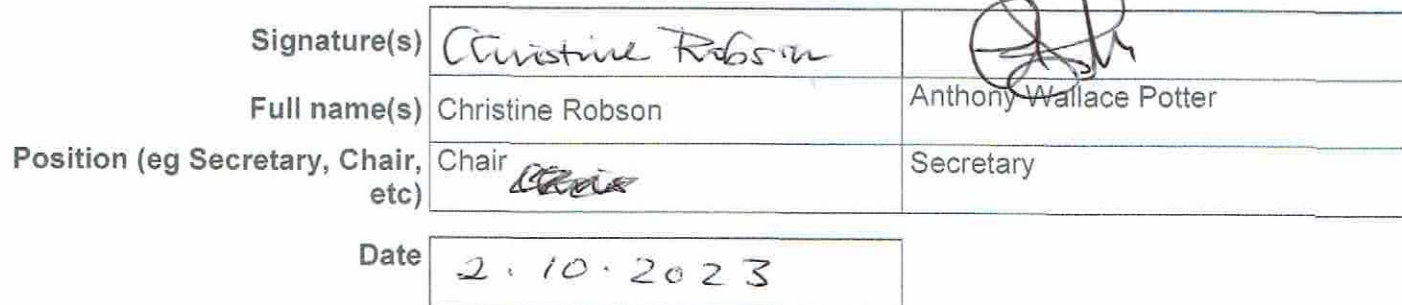 Signature(s) Christine Robson
Full name(s) Christine Robson Anthony Wallace Potter
Position (eg Secretary, Chair, Chair Secretary
etc)
Date 2.10.2023